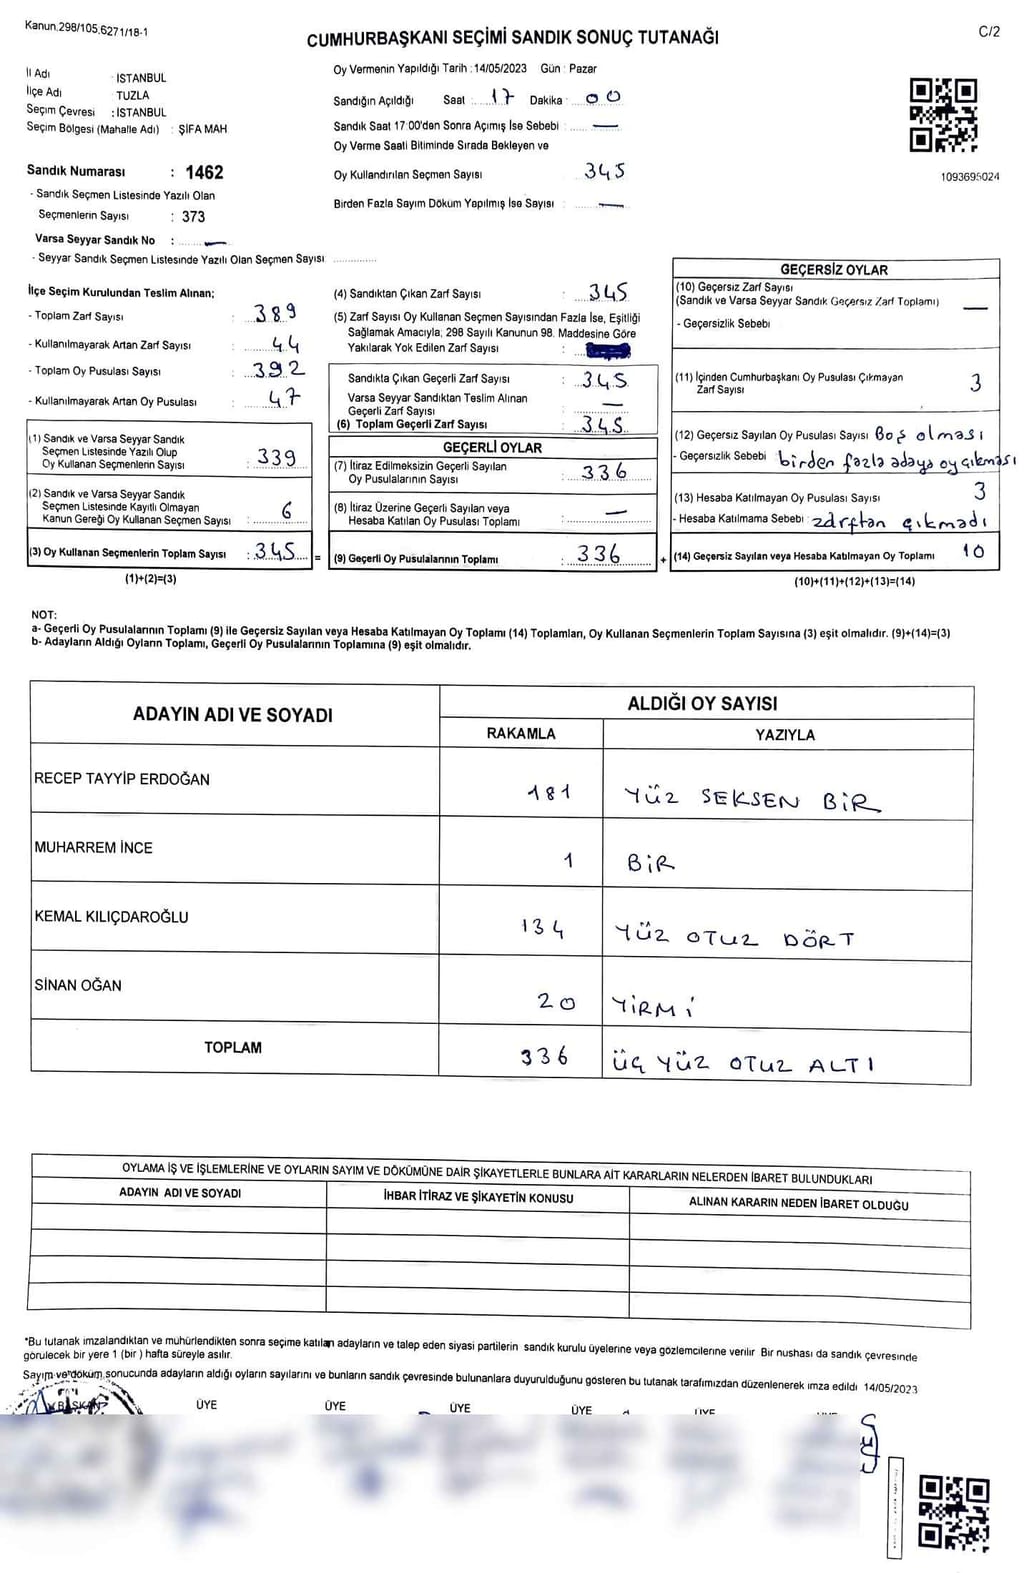 Kanun.298/105.6271/18-1
CUMHURBAŞKANI SEÇİMİ SANDIK SONUÇ TUTANAĞI
C/2
İl Adı : İSTANBUL
İlçe Adı : TUZLA
Seçim Çevresi : İSTANBUL
Seçim Bölgesi (Mahalle Adı) : ŞİFA MAH
Oy Vermenin Yapıldığı Tarih : 14/05/2023 Gün : Pazar
Sandığın Açıldığı Saat : 17 Dakika : 00
Sandık Saat 17:00'den Sonra Açımış İse Sebebi : —
Oy Verme Saati Bitiminde Sırada Bekleyen ve
Oy Kullandırılan Seçmen Sayısı 345
Birden Fazla Sayım Döküm Yapılmış İse Sayısı : —
1093695024
Sandık Numarası : 1462
- Sandık Seçmen Listesinde Yazılı Olan
Seçmenlerin Sayısı : 373
Varsa Seyyar Sandık No : —
- Seyyar Sandık Seçmen Listesinde Yazılı Olan Seçmen Sayısı
İlçe Seçim Kurulundan Teslim Alınan;
- Toplam Zarf Sayısı : 389
- Kullanılmayarak Artan Zarf Sayısı : 44
- Toplam Oy Pusulası Sayısı : 392
- Kullanılmayarak Artan Oy Pusulası : 47
(1) Sandık ve Varsa Seyyar Sandık
Seçmen Listesinde Yazılı Olup
Oy Kullanan Seçmenlerin Sayısı : 339
(2) Sandık ve Varsa Seyyar Sandık
Seçmen Listesinde Kayıtlı Olmayan
Kanun Gereği Oy Kullanan Seçmen Sayısı : 6
(3) Oy Kullanan Seçmenlerin Toplam Sayısı : 345 =
(1)+(2)=(3)
(4) Sandıktan Çıkan Zarf Sayısı : 345
(5) Zarf Sayısı Oy Kullanan Seçmen Sayısından Fazla İse, Eşitliği
Sağlamak Amacıyla; 298 Sayılı Kanunun 98. Maddesine Göre
Yakılarak Yok Edilen Zarf Sayısı :
Sandıkta Çıkan Geçerli Zarf Sayısı : 345
Varsa Seyyar Sandıktan Teslim Alınan
Geçerli Zarf Sayısı : —
(6) Toplam Geçerli Zarf Sayısı : 345
GEÇERLİ OYLAR
(7) İtiraz Edilmeksizin Geçerli Sayılan
Oy Pusulalarının Sayısı : 336
(8) İtiraz Üzerine Geçerli Sayılan veya
Hesaba Katılan Oy Pusulası Toplamı : —
(9) Geçerli Oy Pusulalarının Toplamı : 336 +
GEÇERSİZ OYLAR
(10) Geçersiz Zarf Sayısı
(Sandık ve Varsa Seyyar Sandık Geçersiz Zarf Toplamı) —
- Geçersizlik Sebebi
(11) İçinden Cumhurbaşkanı Oy Pusulası Çıkmayan
Zarf Sayısı 3
(12) Geçersiz Sayılan Oy Pusulası Sayısı Boş olması
- Geçersizlik Sebebi birden fazla adaya oy çıkması
(13) Hesaba Katılmayan Oy Pusulası Sayısı 3
- Hesaba Katılmama Sebebi : zarftan çıkmadı
(14) Geçersiz Sayılan veya Hesaba Katılmayan Oy Toplamı 10
(10)+(11)+(12)+(13)=(14)
NOT:
a- Geçerli Oy Pusulalarının Toplamı (9) ile Geçersiz Sayılan veya Hesaba Katılmayan Oy Toplamı (14) Toplamları, Oy Kullanan Seçmenlerin Toplam Sayısına (3) eşit olmalıdır. (9)+(14)=(3)
b- Adayların Aldığı Oyların Toplamı, Geçerli Oy Pusulalarının Toplamına (9) eşit olmalıdır.
ADAYIN ADI VE SOYADI
ALDIĞI OY SAYISI
RAKAMLA YAZIYLA
RECEP TAYYİP ERDOĞAN 181 YÜZ SEKSEN BİR
MUHARREM İNCE 1 BİR
KEMAL KILIÇDAROĞLU 134 YÜZ OTUZ DÖRT
SİNAN OĞAN 20 YİRMİ
TOPLAM 336 ÜÇ YÜZ OTUZ ALTI
OYLAMA İŞ VE İŞLEMLERİNE VE OYLARIN SAYIM VE DÖKÜMÜNE DAİR ŞİKAYETLERLE BUNLARA AİT KARARLARIN NELERDEN İBARET BULUNDUKLARI
ADAYIN ADI VE SOYADI İHBAR İTİRAZ VE ŞİKAYETİN KONUSU ALINAN KARARIN NEDEN İBARET OLDUĞU
*Bu tutanak imzalandıktan ve mühürlendikten sonra seçime katılan adayların ve talep eden siyasi partilerin sandık kurulu üyelerine veya gözlemcilerine verilir Bir nushası da sandık çevresinde
görülecek bir yere 1 (bir ) hafta süreyle asılır.
Sayım ve döküm sonucunda adayların aldığı oyların sayılarını ve bunların sandık çevresinde bulunanlara duyurulduğunu gösteren bu tutanak tarafımızdan düzenlenerek imza edildi 14/05/2023
BAŞKAN ÜYE ÜYE ÜYE ÜYE ÜYE